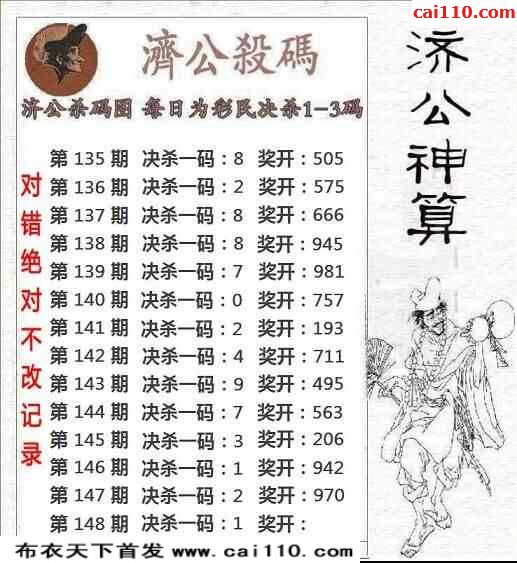 cai110.com
濟公殺碼
济公杀码图 每日为彩民决杀1-3码
济公神算
对错绝对不改记录
第 135 期 决杀一码:8 奖开:505
第 136 期 决杀一码:2 奖开:575
第 137 期 决杀一码:8 奖开:666
第 138 期 决杀一码:8 奖开:945
第 139 期 决杀一码:7 奖开:981
第 140 期 决杀一码:0 奖开:757
第 141 期 决杀一码:2 奖开:193
第 142 期 决杀一码:4 奖开:711
第 143 期 决杀一码:9 奖开:495
第 144 期 决杀一码:7 奖开:563
第 145 期 决杀一码:3 奖开:206
第 146 期 决杀一码:1 奖开:942
第 147 期 决杀一码:2 奖开:970
第 148 期 决杀一码:1 奖开:
布衣天下首发 www.cai110.com